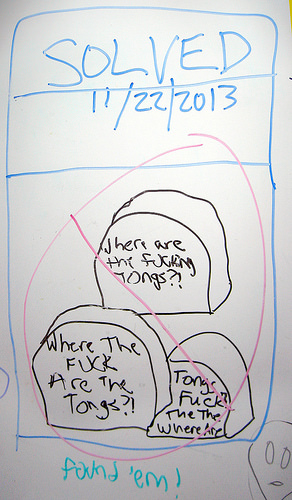 SOLVED
11/22/2013
Where are
the fucking
Tongs?!
Where The
FUCK
Are The
Tongs?!
Tongs
Fuck?!
The The
Where Are
found 'em!